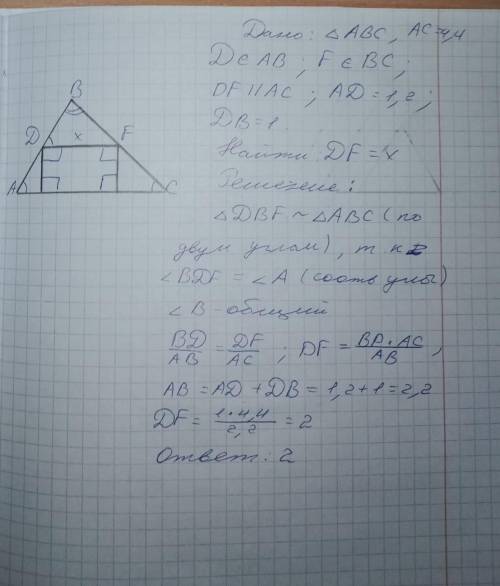 Дано: △ABC, AC=4,4
D∈AB; F∈BC;
DF∥AC; AD=1,2;
DB=1
Найти: DF=x
Решение:
△DBF~△ABC (по
двум углам), т.к
∠BDF=∠A (соотв углы)
∠B-общий
BD/AB=DF/AC; DF=BD·AC/AB,
AB=AD+DB=1,2+1=2,2
DF=1·4,4/2,2=2
Ответ: 2
B
D x F
A C